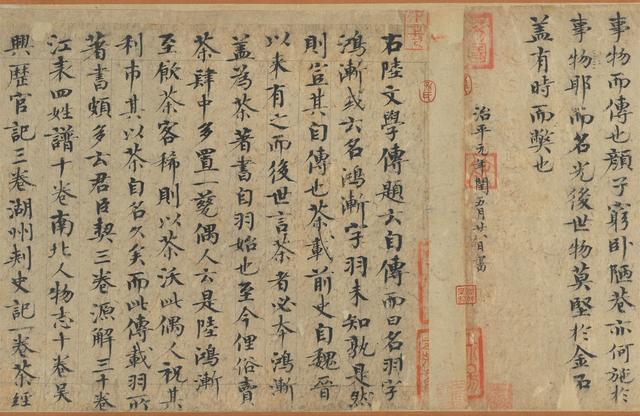 事物而傳也顏子窮臥陋巷亦何施於
事物耶而名光後世物莫堅於金石
蓋有時而弊也
治平元年閏五月廿八日書
右陸文學傳題云自傳而曰名羽字
鴻漸或云名鴻漸字羽未知孰是然
則豈其自傳也茶載前史自魏晉
以來有之而後世言茶者必本鴻漸
蓋為茶著書自羽始也至今俚俗賣
茶肆中多置一甆偶人云是陸鴻漸
至飲茶客稀則以茶沃此偶人祝其
利市其以茶自名久矣而此傳載羽所
著書頗多云君臣契三卷源解三十卷
江表四姓譜十卷南北人物志十卷吳
興歷官記三卷湖州刺史記一卷茶經